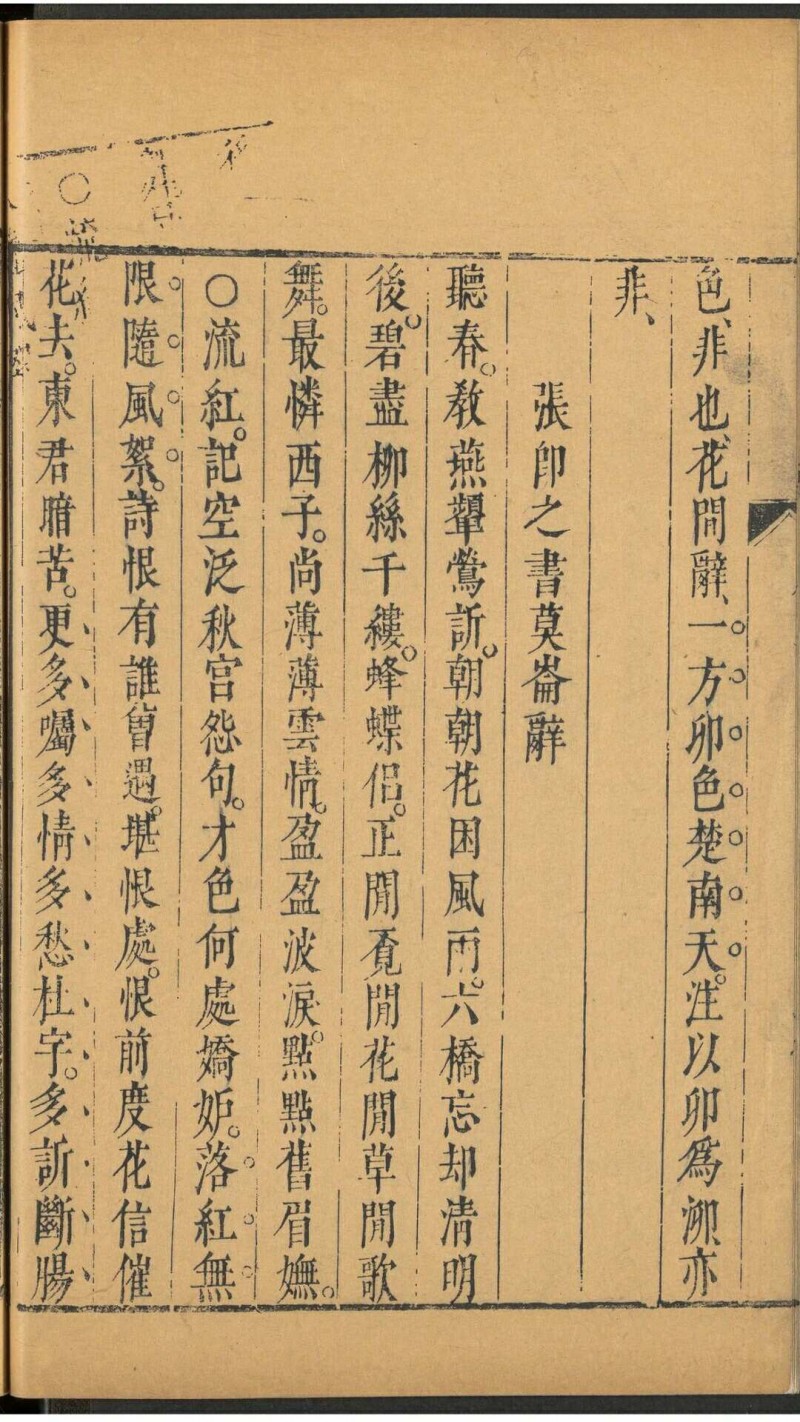 色、非也、花間辭、一方卵色楚南天。注以卵爲泖、亦
非、
張卽之書莫崙辭
聽春。教燕顰鶯訴。朝朝花困風雨。六橋忘却清明
後。碧盡柳絲千縷。蜂蝶侶。正閒覔閒花閒草閒歌
舞。最憐西子。尚薄薄雲情。盈盈波淚。點點舊眉嫵。
○流紅。記空泛秋宫怨句。才色何處嬌妒。落紅無
限隨風絮。詩恨有誰曾遇。堪恨處。恨前度花信催
花去。東君暗苦。更多囑多情多愁杜宇。多訴斷腸